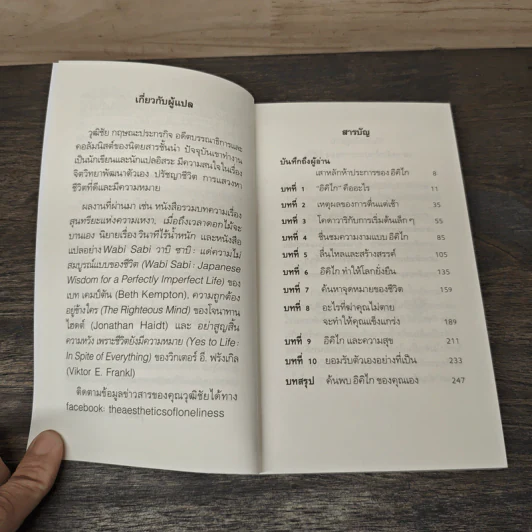 เกี่ยวกับผู้แปล
วุฒิชัย กฤษณะประกรกิจ อดีตบรรณาธิการและ
คอลัมนิสต์ของนิตยสารชั้นนำ ปัจจุบันเขาทำงาน
เป็นนักเขียนและนักแปลอิสระ มีความสนใจในเรื่อง
จิตวิทยาพัฒนาตัวเอง ปรัชญาชีวิต การแสวงหา
ชีวิตที่ดีและมีความหมาย
ผลงานที่ผ่านมา เช่น หนังสือรวมบทความเรื่อง
สุนทรียะแห่งความเหงา, เมื่อถึงเวลาดอกไม้จะ
บานเอง นิยายเรื่อง วินาทีไร้น้ำหนัก และหนังสือ
แปลอย่าง Wabi Sabi วาบิ ซาบิ : แด่ความไม่
สมบูรณ์แบบของชีวิต (Wabi Sabi : Japanese
Wisdom for a Perfectly Imperfect Life) ของ
เบท เคมป์ตัน (Beth Kempton), ความถูกต้อง
อยู่ข้างใคร (The Righteous Mind) ของโจนาทาน
ไฮดต์ (Jonathan Haidt) และ อย่าสูญสิ้น
ความหวัง เพราะชีวิตยังมีความหมาย (Yes to Life :
In Spite of Everything) ของวิกเตอร์ อี. ฟรังเกิล
(Viktor E. Frankl)
ติดตามข้อมูลข่าวสารของคุณวุฒิชัยได้ทาง
facebook: theaestheticsofloneliness
สารบัญ
บันทึกถึงผู้อ่าน
เสาหลักห้าประการของ อิคิไก 8
บทที่ 1 "อิคิไก" คืออะไร 11
บทที่ 2 เหตุผลของการตื่นแต่เช้า 35
บทที่ 3 โคดาวาริกับการเริ่มต้นเล็ก ๆ 55
บทที่ 4 ชื่นชมความงามแบบ อิคิไก 85
บทที่ 5 ลื่นไหลและสร้างสรรค์ 105
บทที่ 6 อิคิไก ทำให้โลกยั่งยืน 135
บทที่ 7 ค้นหาจุดหมายของชีวิต 159
บทที่ 8 อะไรที่ฆ่าคุณไม่ตาย
จะทำให้คุณแข็งแกร่ง 189
บทที่ 9 อิคิไก และความสุข 211
บทที่ 10 ยอมรับตัวเองอย่างที่เป็น 233
บทสรุป ค้นพบ อิคิไก ของคุณเอง 247